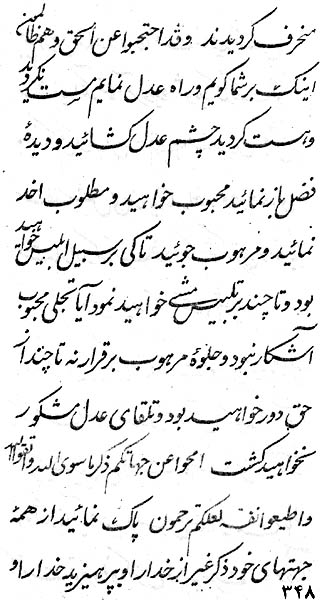 منحرف کردیدند وقد احتجبوا عن الحق وهم ظالمین
اینک بر شما کویم وراه عدل نمایم مست نکردید
وهست کردید چشم عدل کشائید ودیدهٔ
فضل باز نمائید محبوب خواهید ومطلوب اخذ
نمائید ومرهوب جوئید تا کی بر سبیل ابلیس خواهید
بود وتا چند بر تلبیس مشی خواهید نمود آیا تجلی محبوب
آشکار نبود وجلوهٔ مرهوب برقرار نه تا چند از
حق دور خواهید بود وتلقای عدل مشکور
نخواهید کشت امحوا عن جهاتکم ذکر ما سوی الله واتقوا الله
واطیعوا لعلکم ترحمون پاک نمائید از همهٔ
جهتهای خود ذکر غیر از خدا را وبپرهیزید خدا را و
۳۴۸